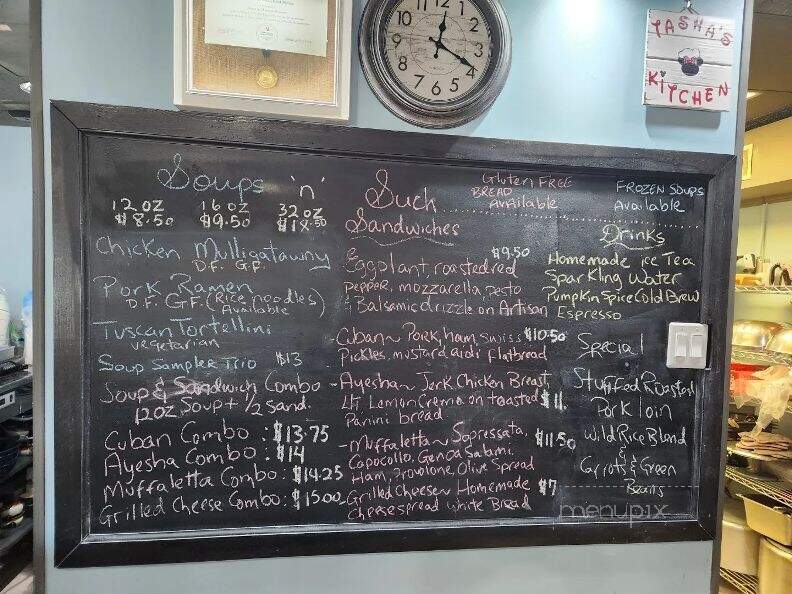 12
1
2
3
4
5
6
7
8
9
10
11
TASHA'S
KITCHEN
Soups 'n' Such
12 OZ 16 OZ 32 OZ
$8.50 $9.50 $18.50
Chicken Mulligatawny
D.F. G.F.
Pork Ramen
D.F. G.F. (Rice noodles)
Available
Tuscan Tortellini
vegetarian
Soup Sampler Trio $13
Soup & Sandwich Combo
12OZ Soup + 1/2 Sand.
Cuban Combo : $13.75
Ayesha Combo : $14
Muffaletta Combo : $14.25
Grilled Cheese Combo : $15.00
Gluten FREE
BREAD
Available
Sandwiches
Eggplant, roasted red $9.50
pepper, mozzarella, pesto
& Balsamic drizzle on Artisan
Cuban ~ Pork, ham, swiss $10.50
Pickles, mustard aidi flatbread
- Ayesha ~ Jerk Chicken Breast,
L/T Lemon Crema on toasted $11.
Panini bread
- Muffaletta ~ Sopressata, $11.50
Capocollo, Genoa Salami,
Ham, Provolone, Olive Spread
- Grilled Cheese ~ Homemade $7
Cheese spread white Bread
FROZEN SOUPS
Available
Drinks
Homemade ice Tea
Sparkling Water
Pumpkin Spice Cold Brew
Espresso
Special
Stuffed Roasted
Pork loin
Wild Rice Blend
&
Carrots & Green
Beans
menupix